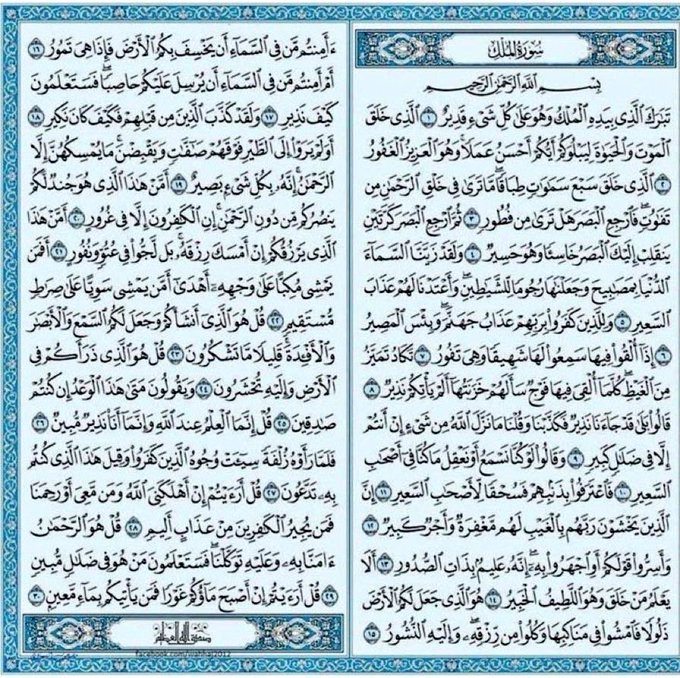 سُورَةُ المُلْكِ
بِسْمِ اللَّهِ الرَّحْمَٰنِ الرَّحِيمِ
تَبَارَكَ الَّذِي بِيَدِهِ الْمُلْكُ وَهُوَ عَلَىٰ كُلِّ شَيْءٍ قَدِيرٌ ١ الَّذِي خَلَقَ
الْمَوْتَ وَالْحَيَاةَ لِيَبْلُوَكُمْ أَيُّكُمْ أَحْسَنُ عَمَلًا وَهُوَ الْعَزِيزُ الْغَفُورُ
٢ الَّذِي خَلَقَ سَبْعَ سَمَاوَاتٍ طِبَاقًا مَّا تَرَىٰ فِي خَلْقِ الرَّحْمَٰنِ مِن
تَفَاوُتٍ فَارْجِعِ الْبَصَرَ هَلْ تَرَىٰ مِن فُطُورٍ ٣ ثُمَّ ارْجِعِ الْبَصَرَ كَرَّتَيْنِ
يَنقَلِبْ إِلَيْكَ الْبَصَرُ خَاسِئًا وَهُوَ حَسِيرٌ ٤ وَلَقَدْ زَيَّنَّا السَّمَاءَ
الدُّنْيَا بِمَصَابِيحَ وَجَعَلْنَاهَا رُجُومًا لِّلشَّيَاطِينِ وَأَعْتَدْنَا لَهُمْ عَذَابَ
السَّعِيرِ ٥ وَلِلَّذِينَ كَفَرُوا بِرَبِّهِمْ عَذَابُ جَهَنَّمَ وَبِئْسَ الْمَصِيرُ
٦ إِذَا أُلْقُوا فِيهَا سَمِعُوا لَهَا شَهِيقًا وَهِيَ تَفُورُ ٧ تَكَادُ تَمَيَّزُ
مِنَ الْغَيْظِ كُلَّمَا أُلْقِيَ فِيهَا فَوْجٌ سَأَلَهُمْ خَزَنَتُهَا أَلَمْ يَأْتِكُمْ نَذِيرٌ ٨
قَالُوا بَلَىٰ قَدْ جَاءَنَا نَذِيرٌ فَكَذَّبْنَا وَقُلْنَا مَا نَزَّلَ اللَّهُ مِن شَيْءٍ إِنْ أَنتُمْ
إِلَّا فِي ضَلَالٍ كَبِيرٍ ٩ وَقَالُوا لَوْ كُنَّا نَسْمَعُ أَوْ نَعْقِلُ مَا كُنَّا فِي أَصْحَابِ
السَّعِيرِ ١٠ فَاعْتَرَفُوا بِذَنبِهِمْ فَسُحْقًا لِّأَصْحَابِ السَّعِيرِ ١١ إِنَّ
الَّذِينَ يَخْشَوْنَ رَبَّهُم بِالْغَيْبِ لَهُم مَّغْفِرَةٌ وَأَجْرٌ كَبِيرٌ ١٢
وَأَسِرُّوا قَوْلَكُمْ أَوِ اجْهَرُوا بِهِ إِنَّهُ عَلِيمٌ بِذَاتِ الصُّدُورِ ١٣ أَلَا
يَعْلَمُ مَنْ خَلَقَ وَهُوَ اللَّطِيفُ الْخَبِيرُ ١٤ هُوَ الَّذِي جَعَلَ لَكُمُ الْأَرْضَ
ذَلُولًا فَامْشُوا فِي مَنَاكِبِهَا وَكُلُوا مِن رِّزْقِهِ وَإِلَيْهِ النُّشُورُ ١٥
ءَأَمِنتُم مَّن فِي السَّمَاءِ أَن يَخْسِفَ بِكُمُ الْأَرْضَ فَإِذَا هِيَ تَمُورُ ١٦
أَمْ أَمِنتُم مَّن فِي السَّمَاءِ أَن يُرْسِلَ عَلَيْكُمْ حَاصِبًا فَسَتَعْلَمُونَ
كَيْفَ نَذِيرِ ١٧ وَلَقَدْ كَذَّبَ الَّذِينَ مِن قَبْلِهِمْ فَكَيْفَ كَانَ نَكِيرِ ١٨
أَوَلَمْ يَرَوْا إِلَى الطَّيْرِ فَوْقَهُمْ صَافَّاتٍ وَيَقْبِضْنَ مَا يُمْسِكُهُنَّ إِلَّا
الرَّحْمَٰنُ إِنَّهُ بِكُلِّ شَيْءٍ بَصِيرٌ ١٩ أَمَّنْ هَٰذَا الَّذِي هُوَ جُندٌ لَّكُمْ
يَنصُرُكُم مِّن دُونِ الرَّحْمَٰنِ إِنِ الْكَافِرُونَ إِلَّا فِي غُرُورٍ ٢٠ أَمَّنْ هَٰذَا
الَّذِي يَرْزُقُكُمْ إِنْ أَمْسَكَ رِزْقَهُ بَل لَّجُّوا فِي عُتُوٍّ وَنُفُورٍ ٢١ أَفَمَن
يَمْشِي مُكِبًّا عَلَىٰ وَجْهِهِ أَهْدَىٰ أَمَّن يَمْشِي سَوِيًّا عَلَىٰ صِرَاطٍ
مُّسْتَقِيمٍ ٢٢ قُلْ هُوَ الَّذِي أَنشَأَكُمْ وَجَعَلَ لَكُمُ السَّمْعَ وَالْأَبْصَارَ
وَالْأَفْئِدَةَ قَلِيلًا مَّا تَشْكُرُونَ ٢٣ قُلْ هُوَ الَّذِي ذَرَأَكُمْ فِي
الْأَرْضِ وَإِلَيْهِ تُحْشَرُونَ ٢٤ وَيَقُولُونَ مَتَىٰ هَٰذَا الْوَعْدُ إِن كُنتُمْ
صَادِقِينَ ٢٥ قُلْ إِنَّمَا الْعِلْمُ عِندَ اللَّهِ وَإِنَّمَا أَنَا نَذِيرٌ مُّبِينٌ ٢٦
فَلَمَّا رَأَوْهُ زُلْفَةً سِيئَتْ وُجُوهُ الَّذِينَ كَفَرُوا وَقِيلَ هَٰذَا الَّذِي كُنتُم
بِهِ تَدَّعُونَ ٢٧ قُلْ أَرَأَيْتُمْ إِنْ أَهْلَكَنِيَ اللَّهُ وَمَن مَّعِيَ أَوْ رَحِمَنَا
فَمَن يُجِيرُ الْكَافِرِينَ مِنْ عَذَابٍ أَلِيمٍ ٢٨ قُلْ هُوَ الرَّحْمَٰنُ
ءَامَنَّا بِهِ وَعَلَيْهِ تَوَكَّلْنَا فَسَتَعْلَمُونَ مَنْ هُوَ فِي ضَلَالٍ مُّبِينٍ
٢٩ قُلْ أَرَأَيْتُمْ إِنْ أَصْبَحَ مَاؤُكُمْ غَوْرًا فَمَن يَأْتِيكُم بِمَاءٍ مَّعِينٍ ٣٠
صدق الله العظيم
facebook.com/wahhaj2012